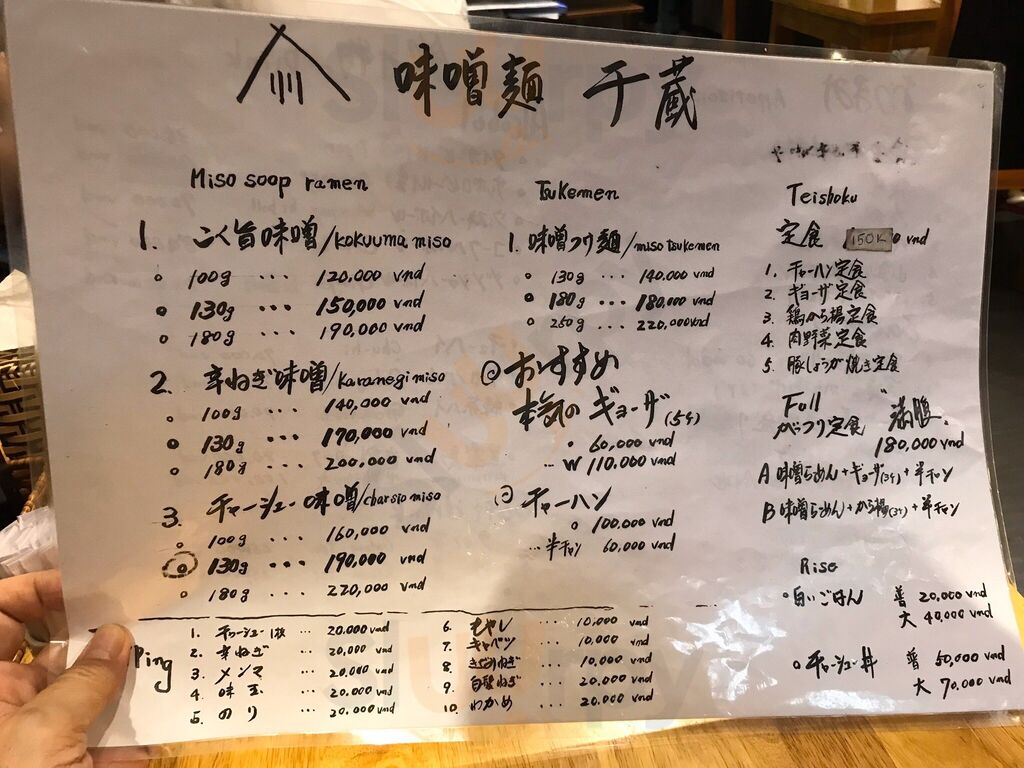 味噌麺 千蔵
Miso soop ramen
1. こく旨味噌/kokuuma miso
100g ... 120,000 vnd
130g ... 150,000 vnd
180g ... 190,000 vnd
2. 辛ねぎ味噌/karanegi miso
100g ... 140,000 vnd
130g ... 170,000 vnd
180g ... 200,000 vnd
3. チャーシュー味噌/charsio miso
100g ... 160,000 vnd
130g ... 190,000 vnd
180g ... 220,000 vnd
Tsukemen
1. 味噌つけ麺/miso tsukemen
130g ... 140,000 vnd
180g ... 180,000 vnd
250g ... 220,000 vnd
おすすめ
本気のギョーザ(5ケ)
60,000 vnd
... W 110,000 vnd
チャーハン
100,000 vnd
... 半チャン 60,000 vnd
Teishoku
定食 150K vnd
1. チャーハン定食
2. ギョーザ定食
3. 鶏から揚定食
4. 肉野菜定食
5. 豚しょうが焼き定食
Full "満腹"
がっつり定食
180,000 vnd
A 味噌らーめん+ギョーザ(3ケ)+半チャン
B 味噌らーめん+から揚(3ケ)+半チャン
Rise
白いごはん 普 20,000 vnd
大 40,000 vnd
チャーシュー丼 普 50,000 vnd
大 70,000 vnd
ping
1. チャーシュー1枚 ... 20,000 vnd
2. 辛ねぎ ... 20,000 vnd
3. メンマ ... 20,000 vnd
4. 味玉 ... 20,000 vnd
5. のり ... 20,000 vnd
6. もやし ... 10,000 vnd
7. キャベツ ... 10,000 vnd
8. きざみねぎ ... 10,000 vnd
9. 白髪ねぎ ... 20,000 vnd
10. わかめ ... 20,000 vnd